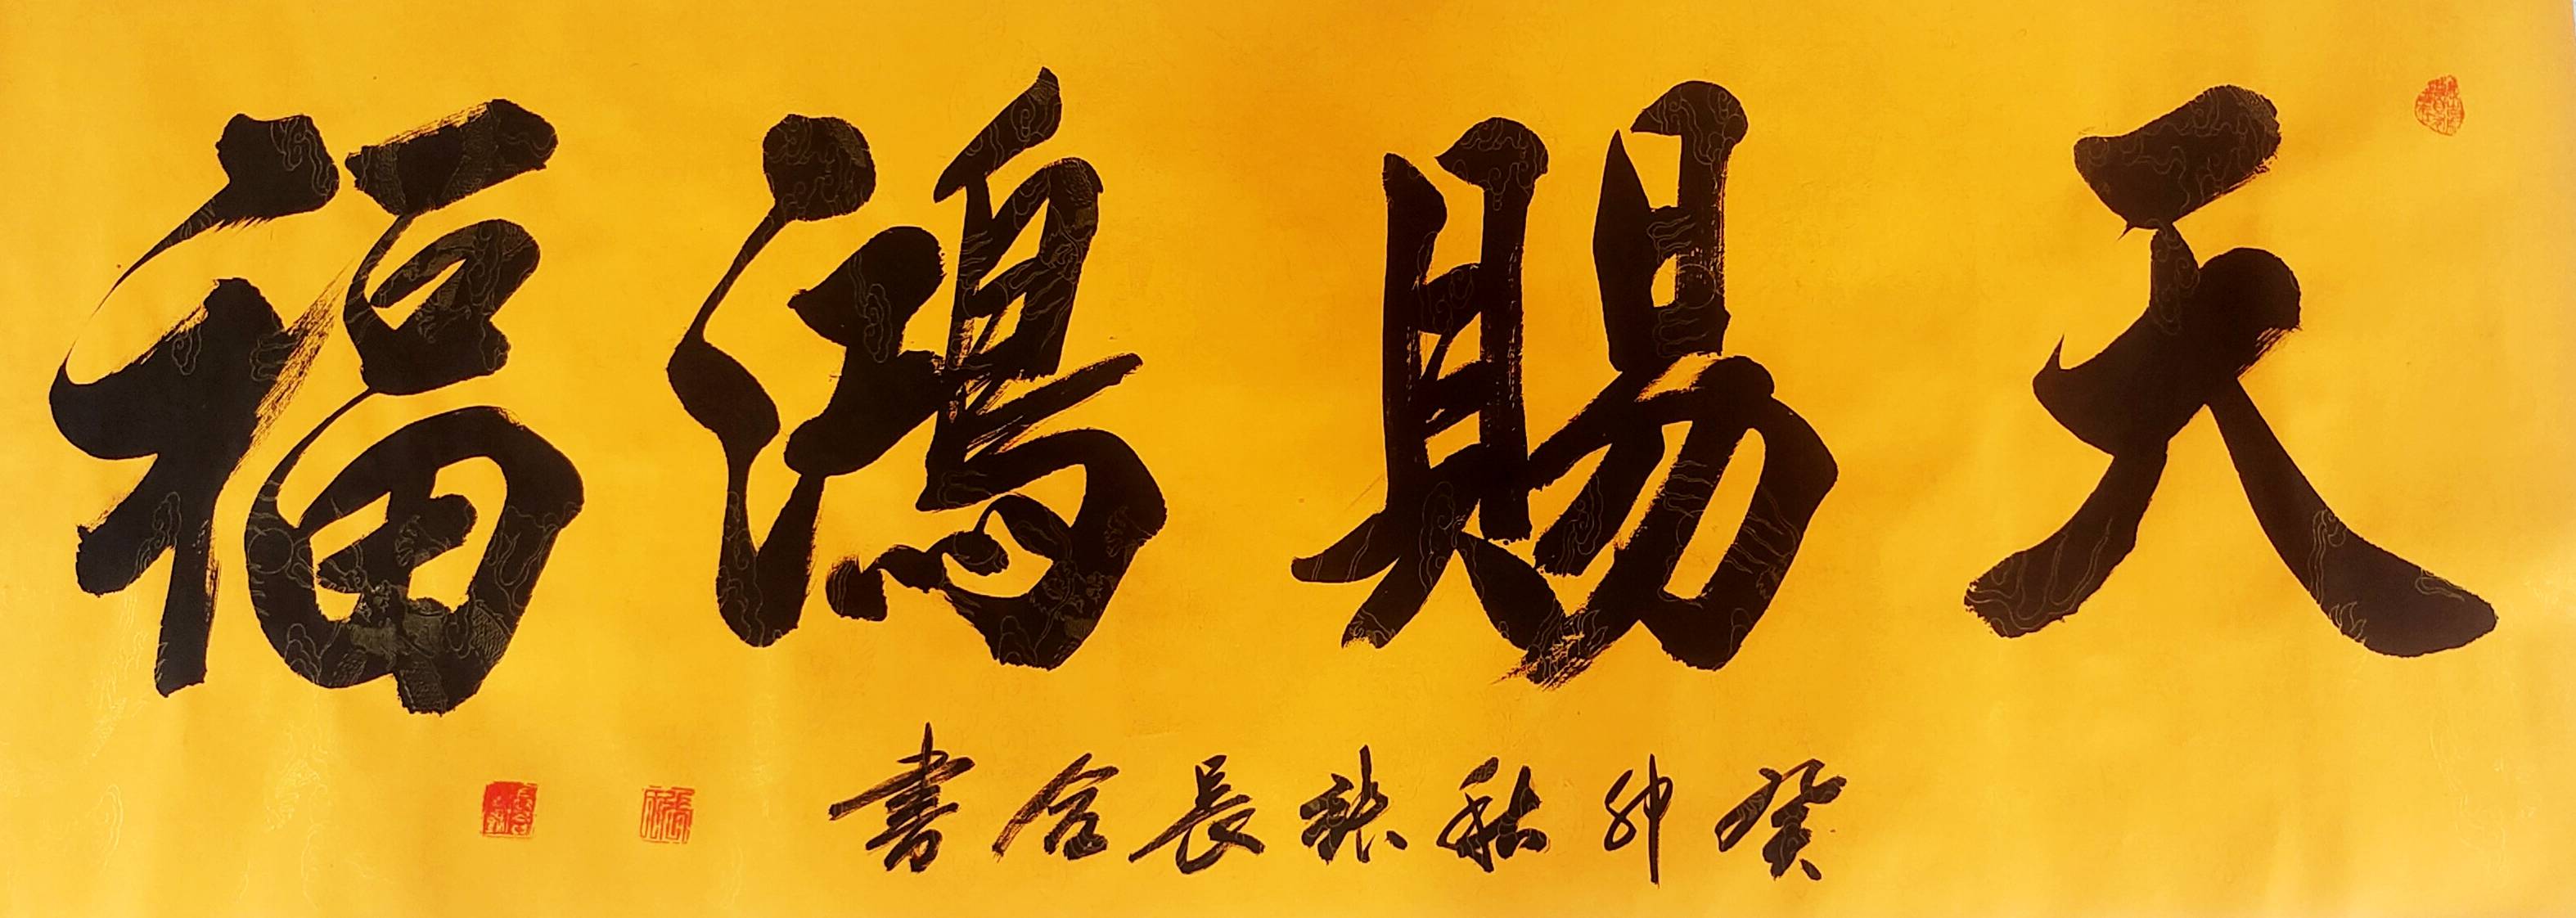 天賜鴻福
癸卯秋張長合書